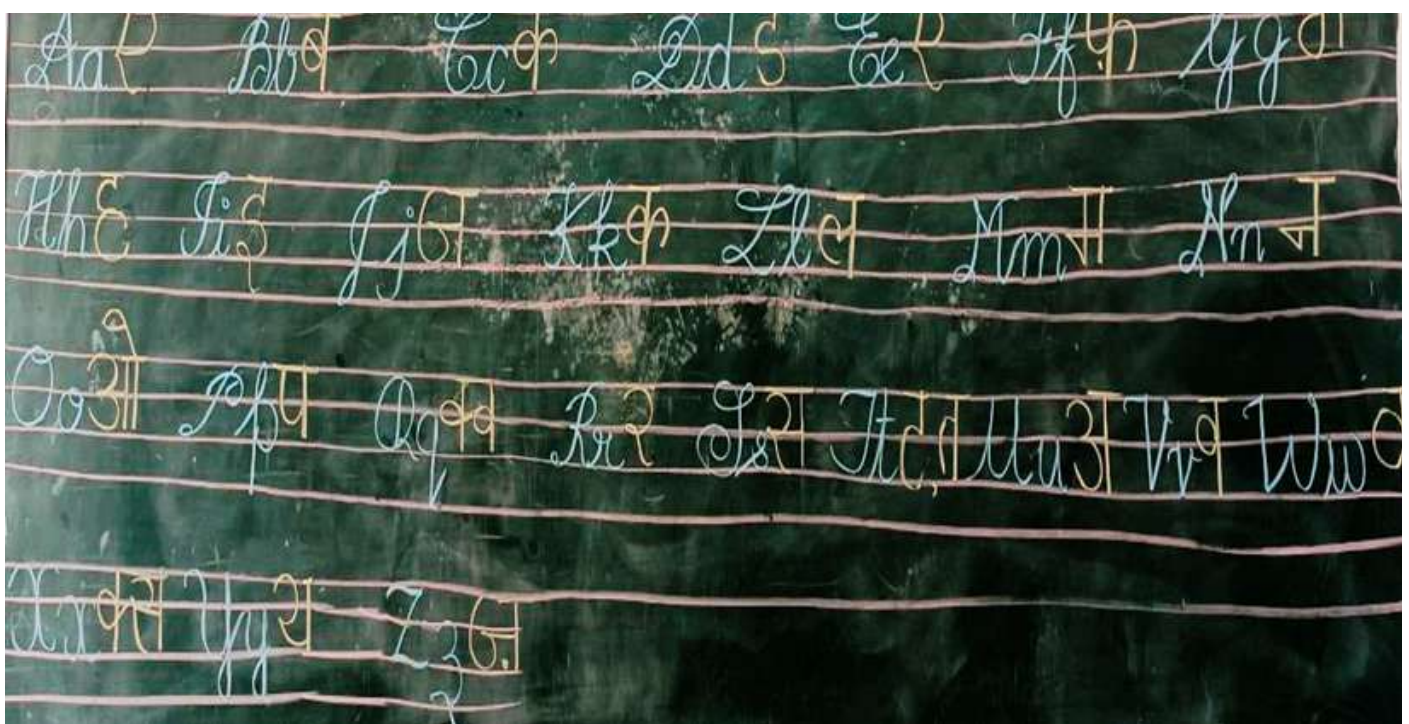 Aa ए Bb ब Cc क Dd ड Ee ए Ff फ Gg ग
Hh ह Ii इ Jj ज Kk क Ll ल Mm म Nn न
Oo ओ Pp प Qq क्व Rr र Ss स Tt ट,त Uu अ Vv व Ww व
Xx क्स Yy य Zz ज़